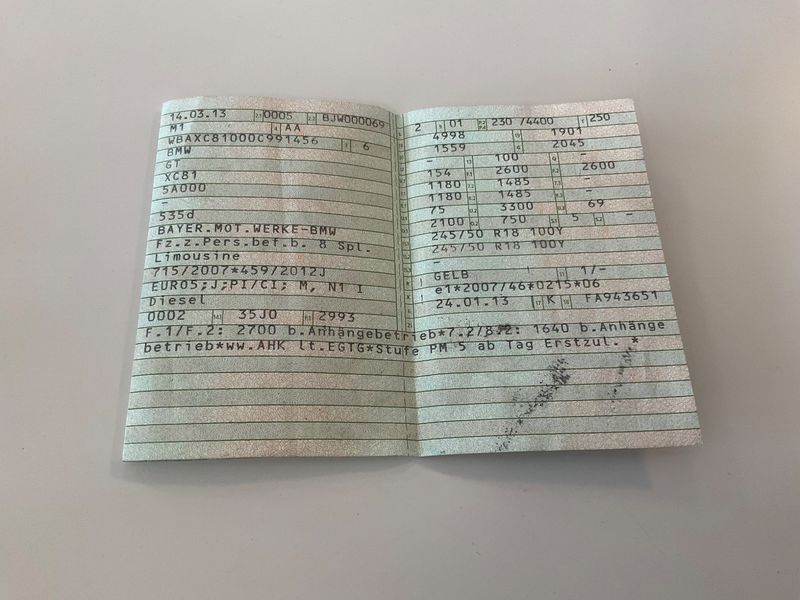 14.03.13 0005 BJW000069
M1 AA
WBAXC81000C991456 6
BMW
GT
XC81
5A000
-
535d
BAYER.MOT.WERKE-BMW
Fz.z.Pers.bef.b. 8 Spl.
Limousine
715/2007*459/2012J
EURO5;J;PI/CI; M, N1 I
Diesel
0002 35J0 2993
2 01 230 /4400 250
4998 1901
1559 2045
- 100 -
154 2600 2600
1180 1485 -
1180 1485 -
75 3300 69
2100 750 5 -
245/50 R18 100Y
245/50 R18 100Y
-
GELB 1/-
e1*2007/46*0215*06
24.01.13 K FA943651
F.1/F.2: 2700 b.Anhängebetrieb*7.2/8.2: 1640 b.Anhänge
betrieb*ww.AHK lt.EGTG*Stufe PM 5 ab Tag Erstzul. *